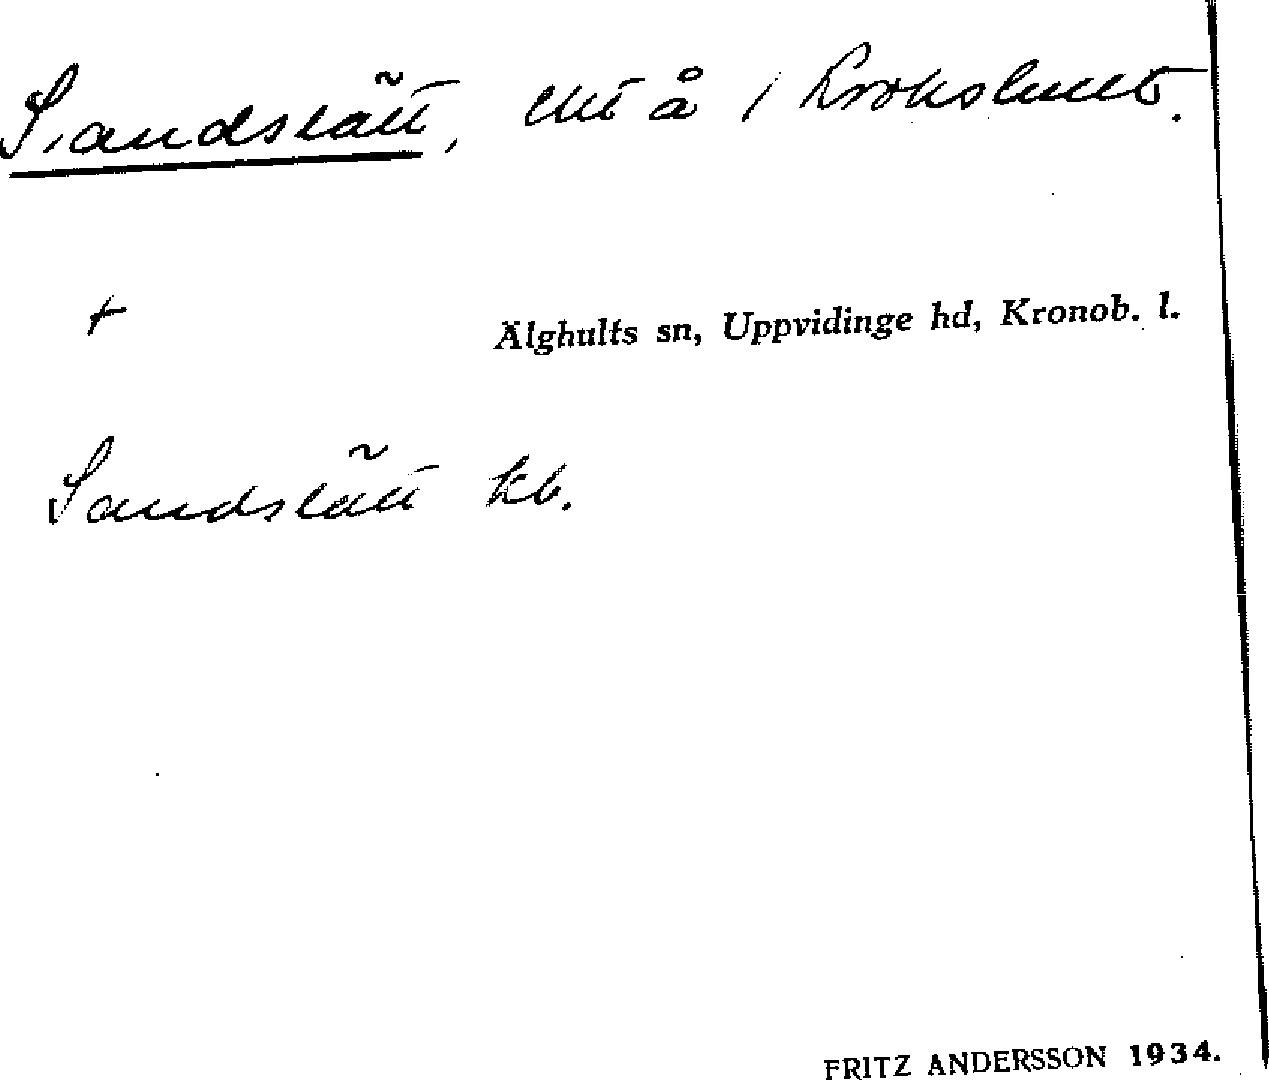 Sandslätt, litt å i Krokshult.
+
Älghults sn, Uppvidinge hd, Kronob. l.
Sandslätt kb.
FRITZ ANDERSSON 1934.